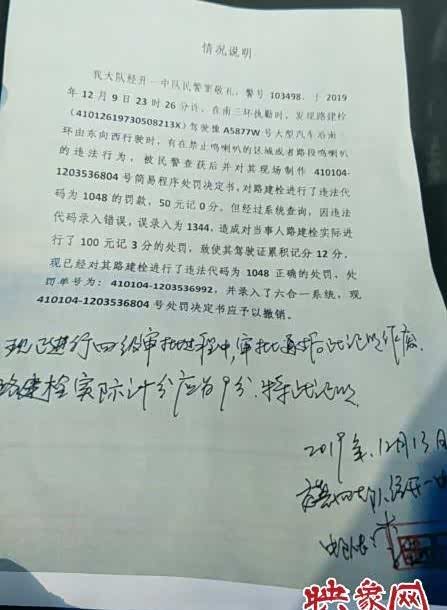 情况说明
我大队经开一中队民警窦敬礼，警号 103498，于 2019
年 12 月 9 日 23 时 26 分许，在南三环执勤时，发现路建栓
(41012619730508213X) 驾驶豫 A5877W 号大型汽车沿南三
环由东向西行驶时，有在禁止鸣喇叭的区域或者路段鸣喇叭
的违法行为，被民警查获后并对其现场制作 410104-
1203536804 号简易程序处罚决定书，对路建栓进行了违法代
码为 1048 的罚款，50 元记 0 分。但经过系统查询，因违法
代码录入错误，误录入为 1344，造成对当事人路建栓实际进
行了 100 元记 3 分的处罚，致使其驾驶证累积记分 12 分，
现已经对其路建栓进行了违法代码为 1048 正确的处罚，处
罚单号为：410104-1203536992，并录入了六合一系统，现
410104-1203536804 号处罚决定书应予以撤销。
现已进行四级审批过程中，审批通过后此证明作废
路建栓实际计分应为9分，特此证明
2019年.12月13日
映象网